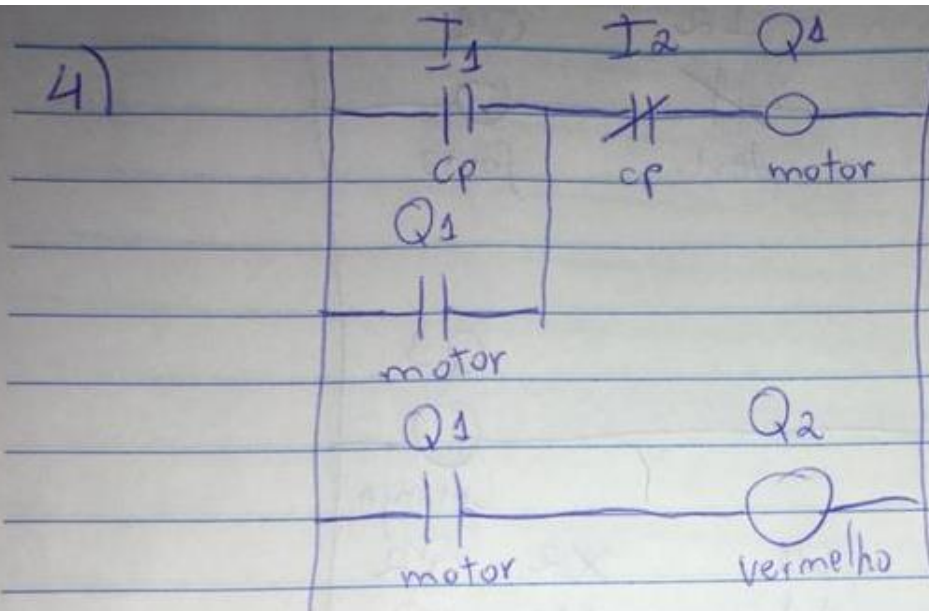 4) I1 I2 Q1
cp cp motor
Q1
motor
Q1 Q2
motor vermelho